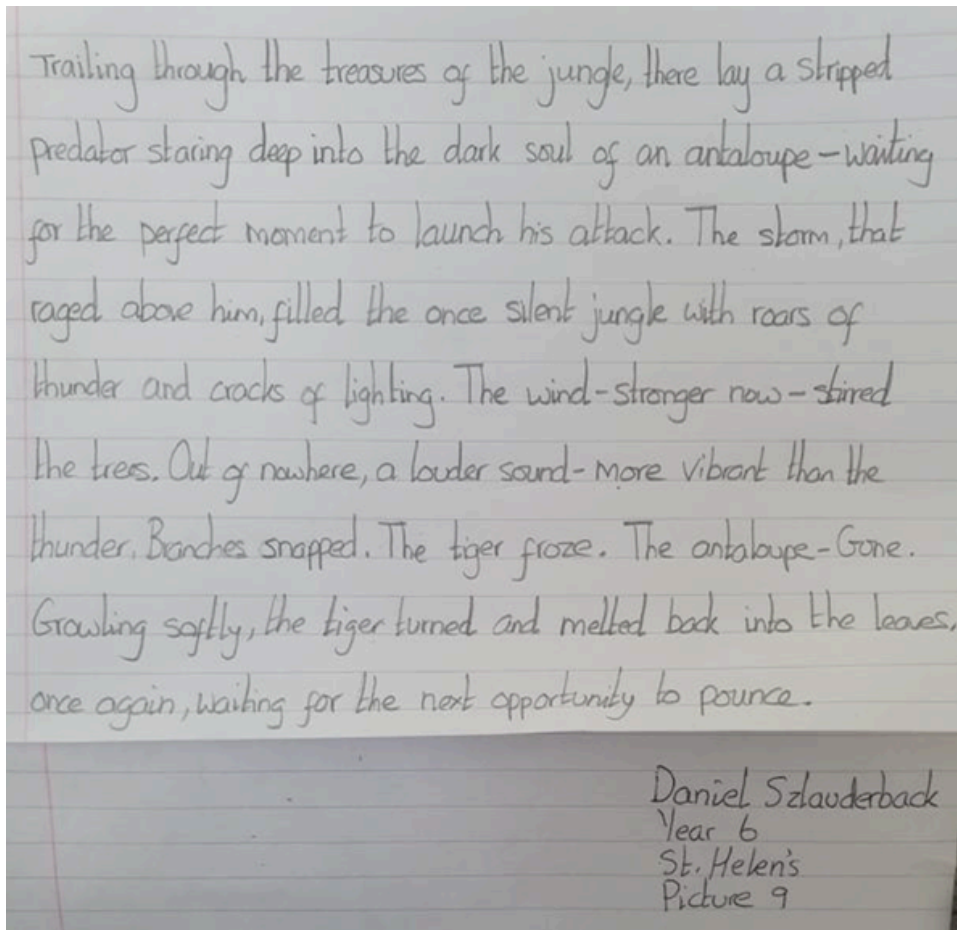 Trailing through the treasures of the jungle, there lay a stripped
predator staring deep into the dark soul of an antaloupe-waiting
for the perfect moment to launch his attack. The storm, that
raged above him, filled the once silent jungle with roars of
thunder and cracks of lighting. The wind-stronger now-stirred
the trees. Out of nowhere, a louder sound-more vibrant than the
thunder. Branches snapped. The tiger froze. The antaloupe-Gone.
Growling softly, the tiger turned and melted back into the leaves,
once again, waiting for the next opportunity to pounce.
Daniel Szlauderback
Year 6
St. Helen's
Picture 9